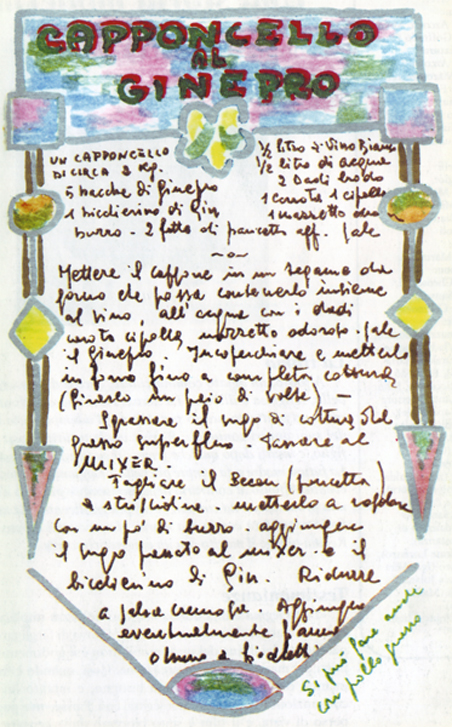 CAPPONCELLO
AL
GINEPRO
UN CAPPONCELLO
DI CIRCA 2 Kg.
5 bacche di Ginepro
1 bicchierino di Gin
burro - 2 fette di pancetta aff. sale
1/2 litro di Vino Bianco
1/2 litro di acqua
2 Dadi brodo
1 carota 1 cipolla
1 mazzetto odori
Mettere il cappone in un tegame da
forno che possa contenerlo insieme
al vino, all'acqua con i dadi
carota cipolla mazzetto odoroso. sale
il ginepro. Incoperchiare e metterlo
in forno fino a completa cottura
(Girarlo un paio di volte) -
Sgrassare il sugo di cottura del
grasso superfluo. Passare al
MIXER.
Tagliare il Becon (pancetta)
a striscioline. metterlo a rosolare
con un po' di burro. aggiungere
il sugo passato al mixer e il
bicchierino di Gin. Ridurre
a salsa cremosa. Aggiungere
eventualmente
Si può fare anche
con pollo grosso